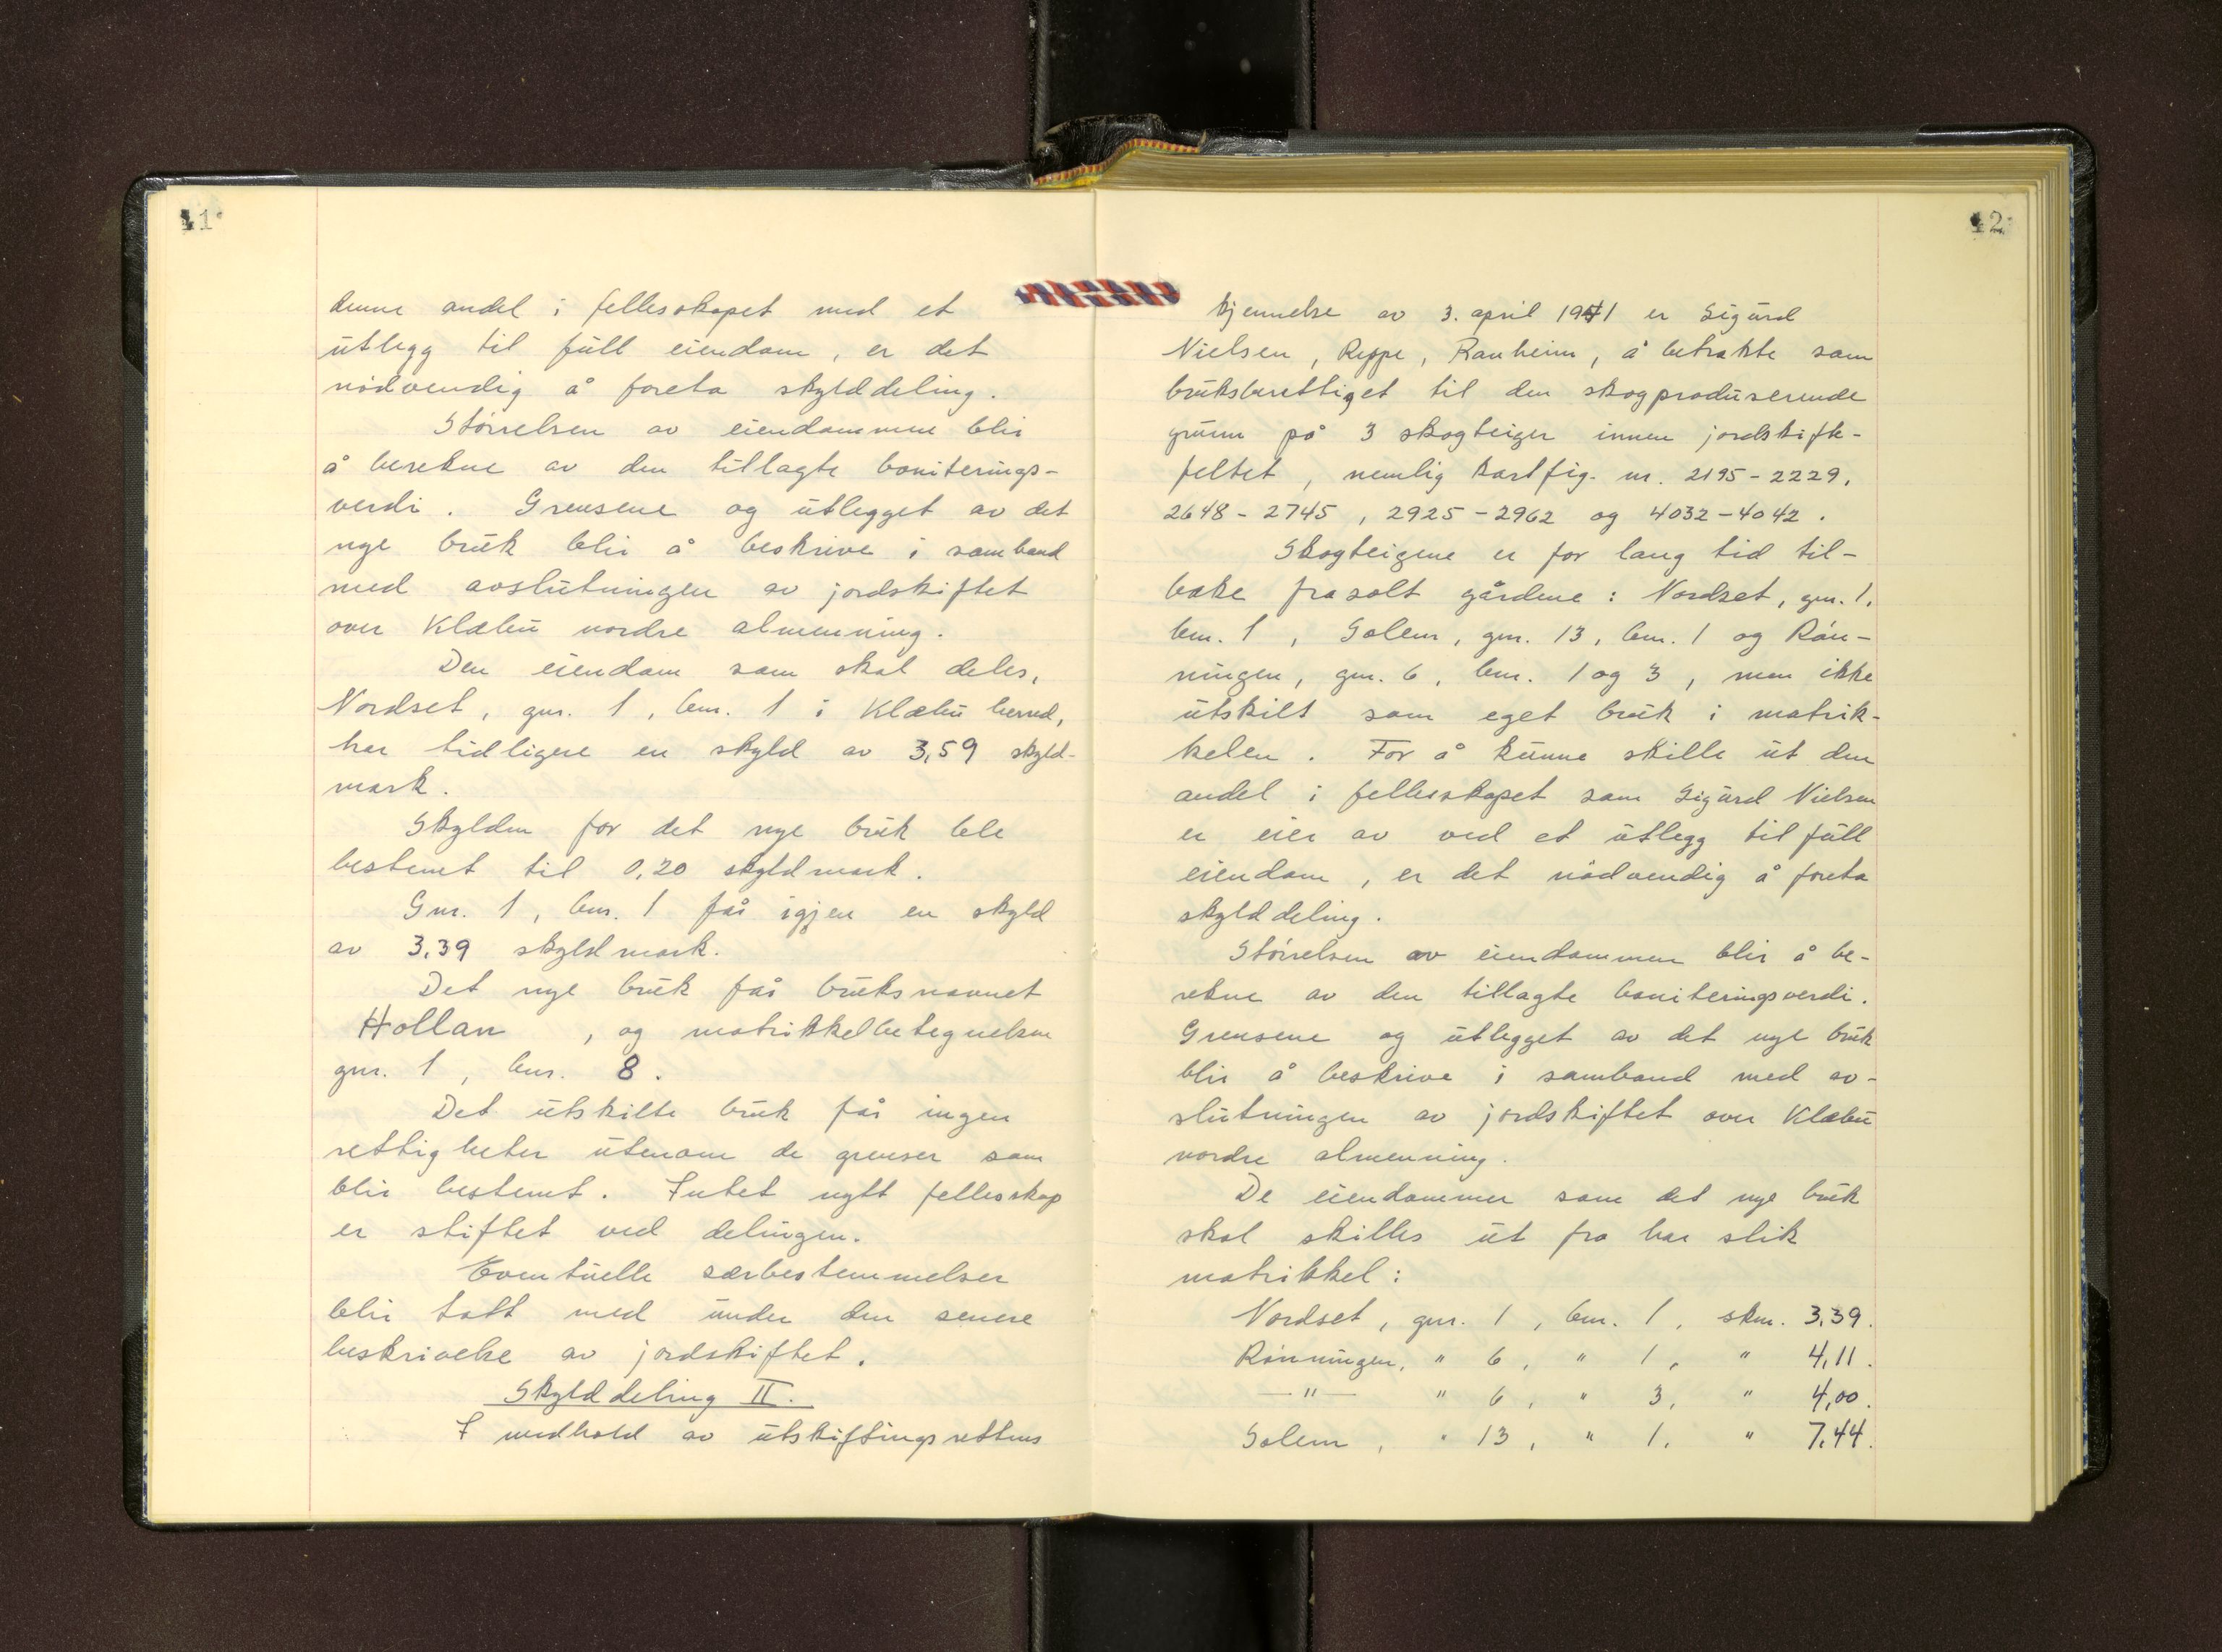 41
denne andel i fellesskapet med et
utlegg til full eiendom, er det
nødvendig å foreta skylddeling.
Størrelsen av eiendommene blir
å berekne av den tillagte boniterings-
verdi. Grensene og utlegget av det
nye bruk blir å beskrive i samband
med avslutningen av jordskiftet
over Klæbu nordre almenning.
Den eiendom som skal deles,
Nordset, gnr. 1, bnr. 1 i Klæbu herred,
har tidligere en skyld av 3,59 skyld-
mark.
Skylden for det nye bruk ble
bestemt til 0,20 skyldmark.
Gnr. 1, bnr. 1 får igjen en skyld
av 3,39 skyldmark.
Det nye bruk får bruksnavnet
Hollan, og matrikkelbetegnelsen
gnr. 1, bnr. 8.
Det utskilte bruk får ingen
rettigheter utenom de grenser som
blir bestemt. Intet nytt fellesskap
er stiftet ved delingen.
Eventuelle særbestemmelser
blir tatt med under den senere
beskrivelse av jordskiftet.
Skylddeling II.
I medhold av utskiftingsrettens
42
kjennelse av 3. april 1941 er Sigurd
Nielsen, Reppe, Ranheim, å betrakte som
bruksberettiget til den skogproduserende
grunn på 3 skogteiger innen jordskifte-
feltet, nemlig kartfig. nr. 2195-2229,
2648-2745, 2925-2962 og 4032-4042.
Skogteigene er for lang tid til-
bake frasolt gårdene: Nordset, gnr. 1,
bnr. 1, Solem, gnr. 13, bnr. 1 og Røn-
ningen, gnr. 6, bnr. 1 og 3, men ikke
utskilt som eget bruk i matrik-
kelen. For å kunne skille ut den
andel i fellesskapet som Sigurd Nielsen
er eier av ved et utlegg til full
eiendom, er det nødvendig å foreta
skylddeling.
Størrelsen av eiendommen blir å be-
rekne av den tillagte boniteringsverdi.
Grensene og utlegget av det nye bruk
blir å beskrive i samband med av-
slutningen av jordskiftet over Klæbu
nordre almenning.
De eiendommer som det nye bruk
skal skilles ut fra har slik
matrikkel:
Nordset, gnr. 1, bnr. 1, skm. 3,39.
Rønningen, " 6, " 1, " 4,11.
—"— " 6, " 3, " 4,00.
Solem, " 13, " 1, " 7,44.